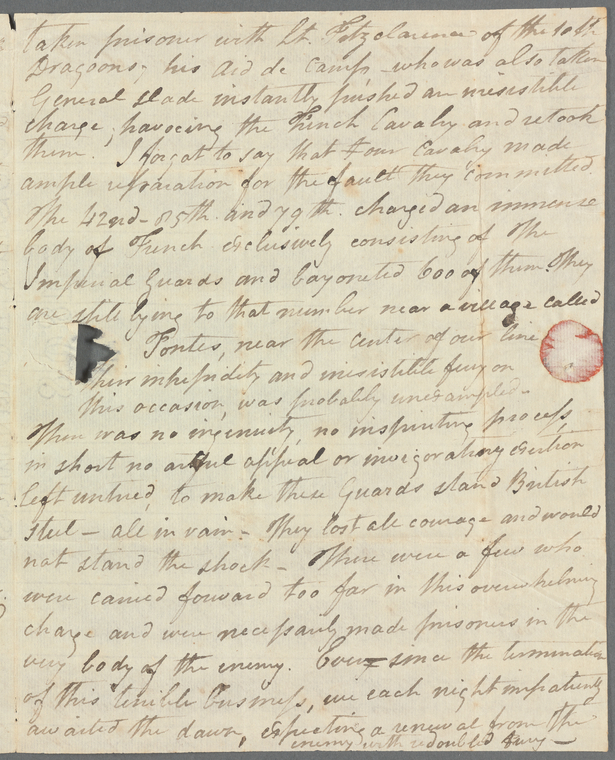 taken prisoner with Lt. Fitzclarence of the 10th
Dragoons, his Aid de Camp who was also taken
General Slade instantly pushed an irresistible
charge, havocing the French Cavalry and retook
them. I forgot to say that our Cavalry made
ample reparation for the fault they committed.
The 42nd - 85th and 79th. charged an immense
body of French exclusively consisting of the
Imperial Guards and bayoneted 600 of them. They
are still lying to that number near a village called
Fontes, near the center of our line
Their intrepidity and irresistible fury on
this occasion, was probably unexampled.
There was no ingenuity, no inspiriting process,
in short no artful appeal or invigorating exertion
left untried, to make these Guards stand British
steel - all in vain - They lost all courage and would
not stand the shock - There were a few who
were carried forward too far in this overwhelming
charge and were necessarily made prisoners in the
very body of the enemy. Ever since the termination
of this terrible business, we each night impatiently
awaited the dawn, expecting a renewal from the
enemy with redoubled fury -